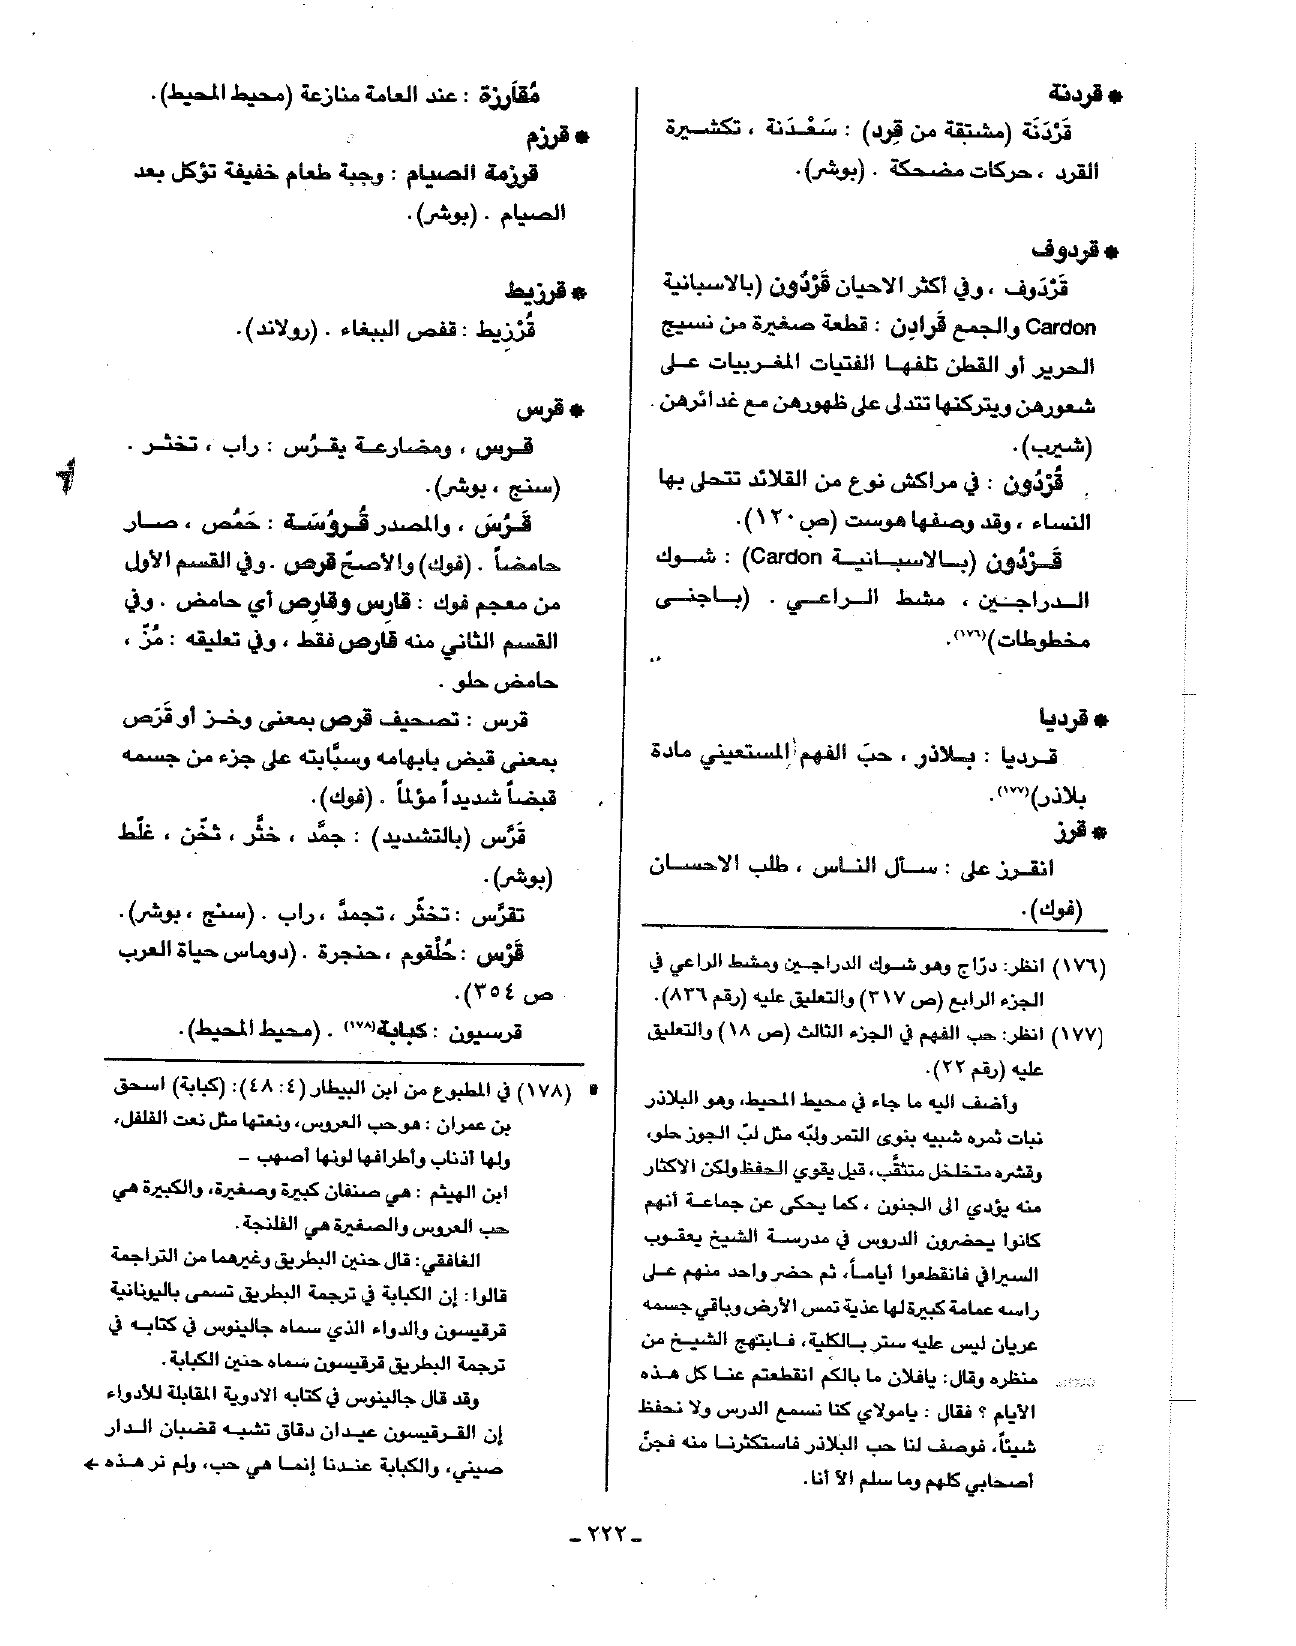 * قردنة
قَرْدَنَة (مشتقة من قِرد) : سَعْدَنة ، تكشيرة
القرد ، حركات مضحكة . (بوشر).
* قردوف
قَرْدَوف ، وفي أكثر الاحيان قَرْدُون (بالاسبانية
Cardon والجمع قَرادِن : قطعة صغيرة من نسيج
الحرير أو القطن تلفها الفتيات المغربيات على
شعورهن ويتركنها تتدلى على ظهورهن مع غدائرهن .
(شيرب).
قُرْدُون : في مراكش نوع من القلائد تتحلى بها
النساء ، وقد وصفها هوست (ص ١٢٠).
قَرْدُون (بالاسبانية Cardon) : شوك
الدراجين ، مشط الراعي . (باجني
مخطوطات)(١٧٦).
* قرديا
قرديا : بلاذر ، حبّ الفهم المستعيني مادة
بلاذر)(١٧٧).
* قرز
انقرز على : سأل الناس ، طلب الاحسان
(فوك).
(١٧٦) انظر: درّاج وهو شوك الدراجين ومشط الراعي في
الجزء الرابع (ص ٣١٧) والتعليق عليه (رقم ٨٣٦).
(١٧٧) انظر: حب الفهم في الجزء الثالث (ص ١٨) والتعليق
عليه (رقم ٢٢).
وأضف اليه ما جاء في محيط المحيط، وهو البلاذر
نبات ثمره شبيه بنوى التمر ولبّه مثل لبّ الجوز حلو،
وقشره متخلخل متثقّب، قيل يقوي الحفظ ولكن الاكثار
منه يؤدي الى الجنون ، كما يحكى عن جماعة أنهم
كانوا يحضرون الدروس في مدرسة الشيخ يعقوب
السيرافي فانقطعوا أياماً، ثم حضر واحد منهم على
راسه عمامة كبيرة لها عذبة تمس الأرض وباقي جسمه
عريان ليس عليه ستر بالكلية، فابتهج الشيخ من
منظره وقال: يافلان ما بالكم انقطعتم عنا كل هذه
الأيام ؟ فقال : يامولاي كنا نسمع الدرس ولا نحفظ
شيئاً، فوصف لنا حب البلاذر فاستكثرنا منه فجنّ
أصحابي كلهم وما سلم الآ أنا.
مُقاَرزة : عند العامة منازعة (محيط المحيط).
* قرزم
قرزمة الصيام : وجبة طعام خفيفة تؤكل بعد
الصيام . (بوشر).
* قرزيط
قُرْزِيط : قفص الببغاء . (رولاند).
* قرس
قرس ، ومضارعة يقرُس : راب ، تخثر .
(سنج ، بوشر).
قَرُسَ ، والمصدر قُروُسَة : حَمُص ، صار
حامضاً . (فوك) والاصحّ قرص . وفي القسم الأول
من معجم فوك : قارِس وقارِص أي حامض . وفي
القسم الثاني منه قارص فقط ، وفي تعليقه : مُزّ ،
حامض حلو .
قرس : تصحيف قرص بمعنى وخز أو قَرَص
بمعنى قبض بابهامه وسبَّابته على جزء من جسمه
قبضاً شديداً مؤلماً . (فوك).
قَرَّس (بالتشديد) : جمَّد ، خثَّر ، ثخّن ، غلّط
(بوشر).
تقرَّس : تخثَّر ، تجمدَّ ، راب . (سنج ، بوشر).
قَرْس : حُلْقوم ، حنجرة . (دوماس حياة العرب
ص ٣٥٤).
قرسيون : كبابة(١٧٨) . (محيط المحيط).
(١٧٨) في المطبوع من ابن البيطار (٤: ٤٨): (كبابة) اسحق
بن عمران : هو حب العروس، ونعتها مثل نعت الفلفل،
ولها أذناب وأطرافها لونها أصهب –
ابن الهيثم : هي صنفان كبيرة وصغيرة، والكبيرة هي
حب العروس والصغيرة هي الفلنجة.
الغافقي: قال حنين البطريق وغيرهما من التراجمة
قالوا: إن الكبابة في ترجمة البطريق تسمى باليونانية
قرقيسون والدواء الذي سماه جالينوس في كتابه في
ترجمة البطريق قرقيسون سماه حنين الكبابة.
وقد قال جالينوس في كتابه الادوية المقابلة للأدواء
إن القرقيسون عيدان دقاق تشبه قضبان الدار
صيني، والكبابة عندنا إنما هي حب، ولم نر هذه ←
ـ ٢٢٢ ـ